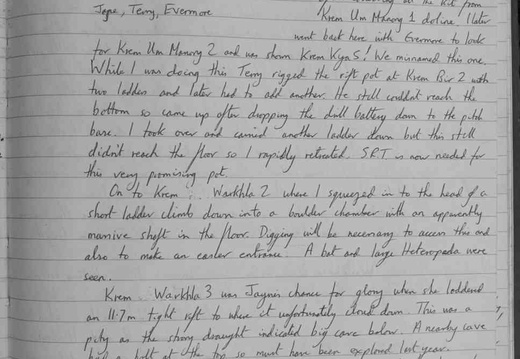 Jope, Terry, Evermore
the kit from
Krem Um Manong 1 doline. I later
went back here with Evermore to look
for Krem Um Manong 2 and was shown Krem Kya S! We misnamed this one.
While I was doing this Terry rigged the rift pot at Krem Bir 2 with
two ladders and later had to add another. He still couldn't reach the
bottom so came up after dropping the drill battery down to the pitch
base. I took over and carried another ladder down but this still
didn't reach the floor so I rapidly retreated. SRT is now needed for
this very promising pot.
On to Krem Warkhla 2 where I squeezed in to the head of a
short ladder climb down into a boulder chamber with an apparently
massive shaft in the floor. Digging will be necessary to access this and
also to make an easier entrance. A bat and large Heteropoda were
seen.
Krem Warkhla 3 was Jaynes chance for glory when she laddered
an 11.7m tight rift to where it unfortunately closed down. This was a
pity as the strong draught indicated big cave below. A nearby cave
had a bolt at the top so must have been explored last year.